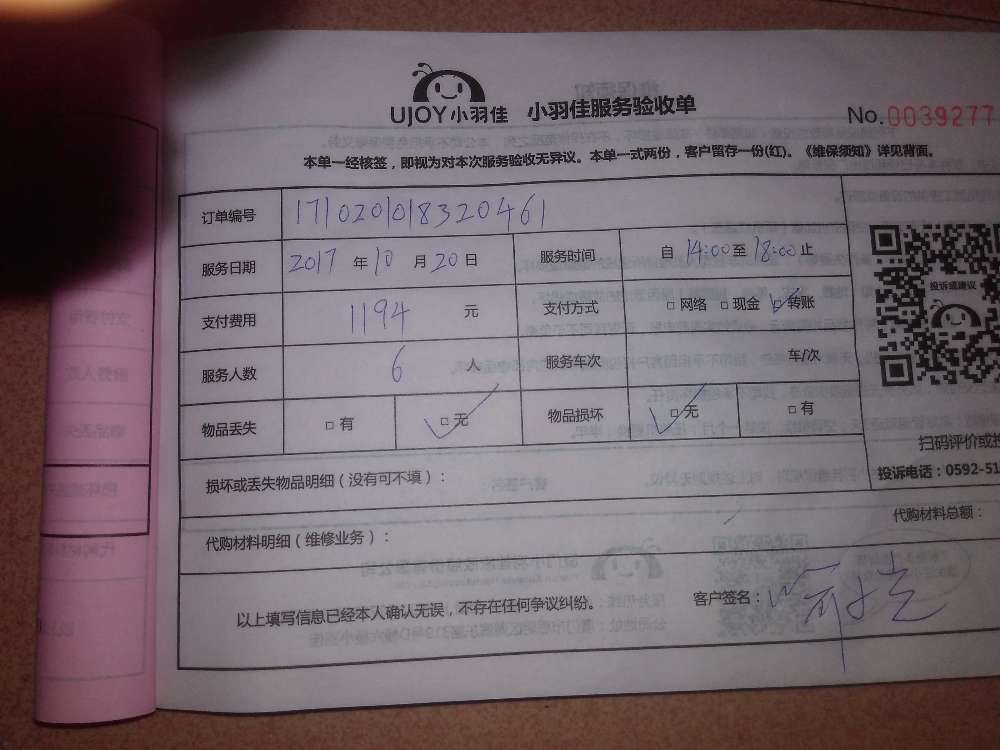 UJOY小羽佳 小羽佳服务验收单 No.0039277
本单一经核签，即视为对本次服务验收无异议。本单一式两份，客户留存一份(红)。《维保须知》详见背面。
订单编号 171020108320461
服务日期 2017 年 10 月 20 日 服务时间 自 14:00 至 18:00 止
支付费用 1194 元 支付方式 □网络 □现金 ☑转账
服务人数 6 人 服务车次 车/次
物品丢失 □有 ☑无 物品损坏 ☑无 □有
投诉或建议
扫码评价或投
损坏或丢失物品明细（没有可不填）： 投诉电话：0592-51
代购材料明细（维修业务）： 代购材料总额：
以上填写信息已经本人确认无误，不存在任何争议纠纷。 客户签名：